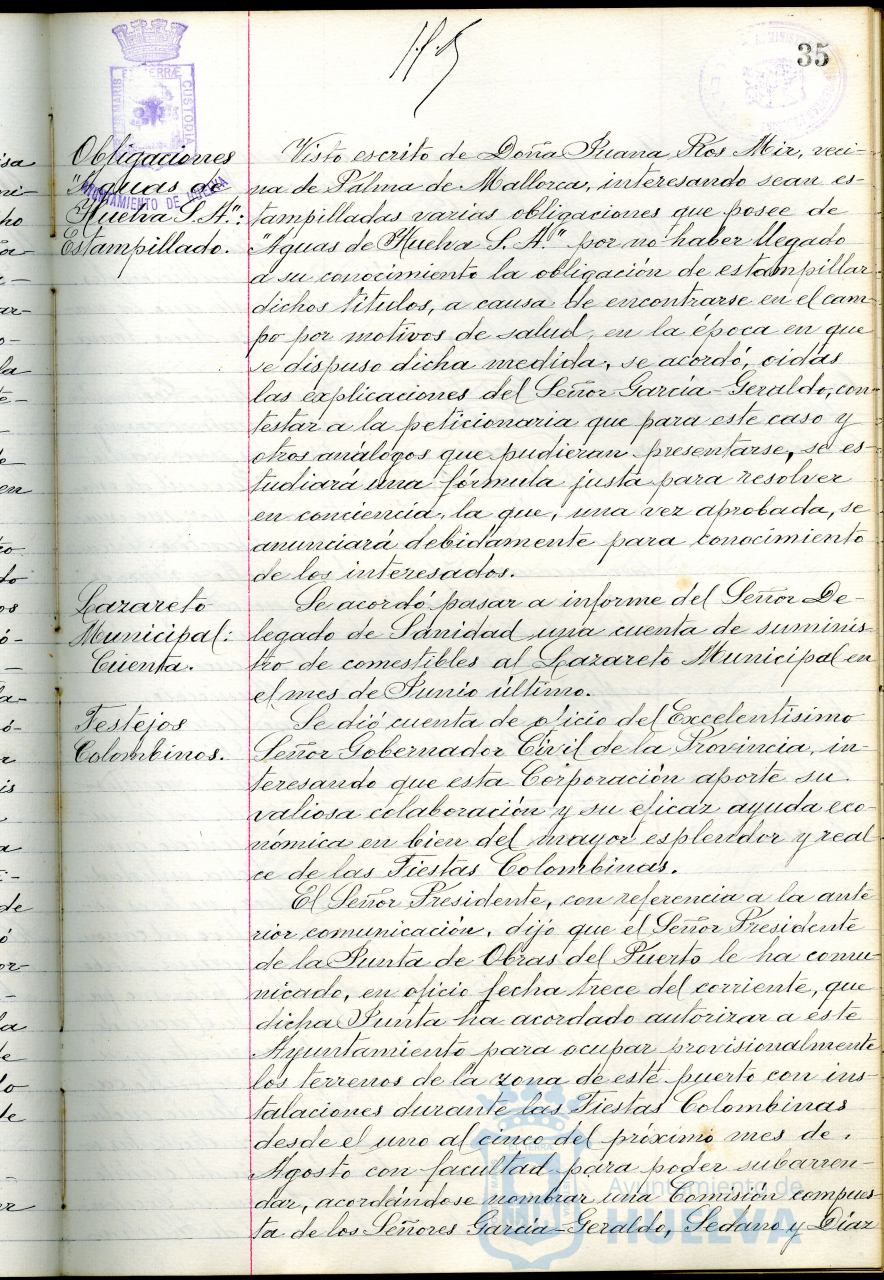 35
Obligaciones
"Aguas de
Huelva S. A.":
Estampillado.
Visto escrito de Doña Juana Ros Mir, veci-
na de Palma de Mallorca, interesando sean es-
tampilladas varias obligaciones que posee de
"Aguas de Huelva S. A." por no haber llegado
a su conocimiento la obligación de estampillar
dichos títulos, a causa de encontrarse en el cam-
po por motivos de salud, en la época en que
se dispuso dicha medida, se acordó, oidas
las explicaciones del Señor García-Geraldo, con
testar a la peticionaria que para este caso y
otros análogos que pudieran presentarse, se es-
tudiará una fórmula justa para resolver
en conciencia, la que, una vez aprobada, se
anunciará debidamente para conocimiento
de los interesados.
Lazareto
Municipal:
Cuenta.
Se acordó pasar a informe del Señor De-
legado de Sanidad una cuenta de suminis-
tro de comestibles al Lazareto Municipal en
el mes de Junio último.
Festejos
Colombinos.
Se dió cuenta de oficio del Excelentísimo
Señor Gobernador Civil de la Provincia, in-
teresando que esta Corporación aporte su
valiosa colaboración y su eficaz ayuda eco-
nómica en bien del mayor esplendor y real
ce de las Fiestas Colombinas.
El Señor Presidente, con referencia a la ante
rior comunicación, dijo que el Señor Presidente
de la Junta de Obras del Puerto le ha comu-
nicado, en oficio fecha trece del corriente, que
dicha Junta ha acordado autorizar a este
Ayuntamiento para ocupar provisionalmente
los terrenos de la zona de este puerto con ins-
talaciones durante las Fiestas Colombinas
desde el uno al cinco del próximo mes de
Agosto con facultad para poder subarren-
dar, acordándose nombrar una Comisión compues-
ta de los Señores García-Geraldo, Sedano y Díaz
AYUNTAMIENTO DE HUELVA
CUSTODIA
Ayuntamiento de
HUELVA